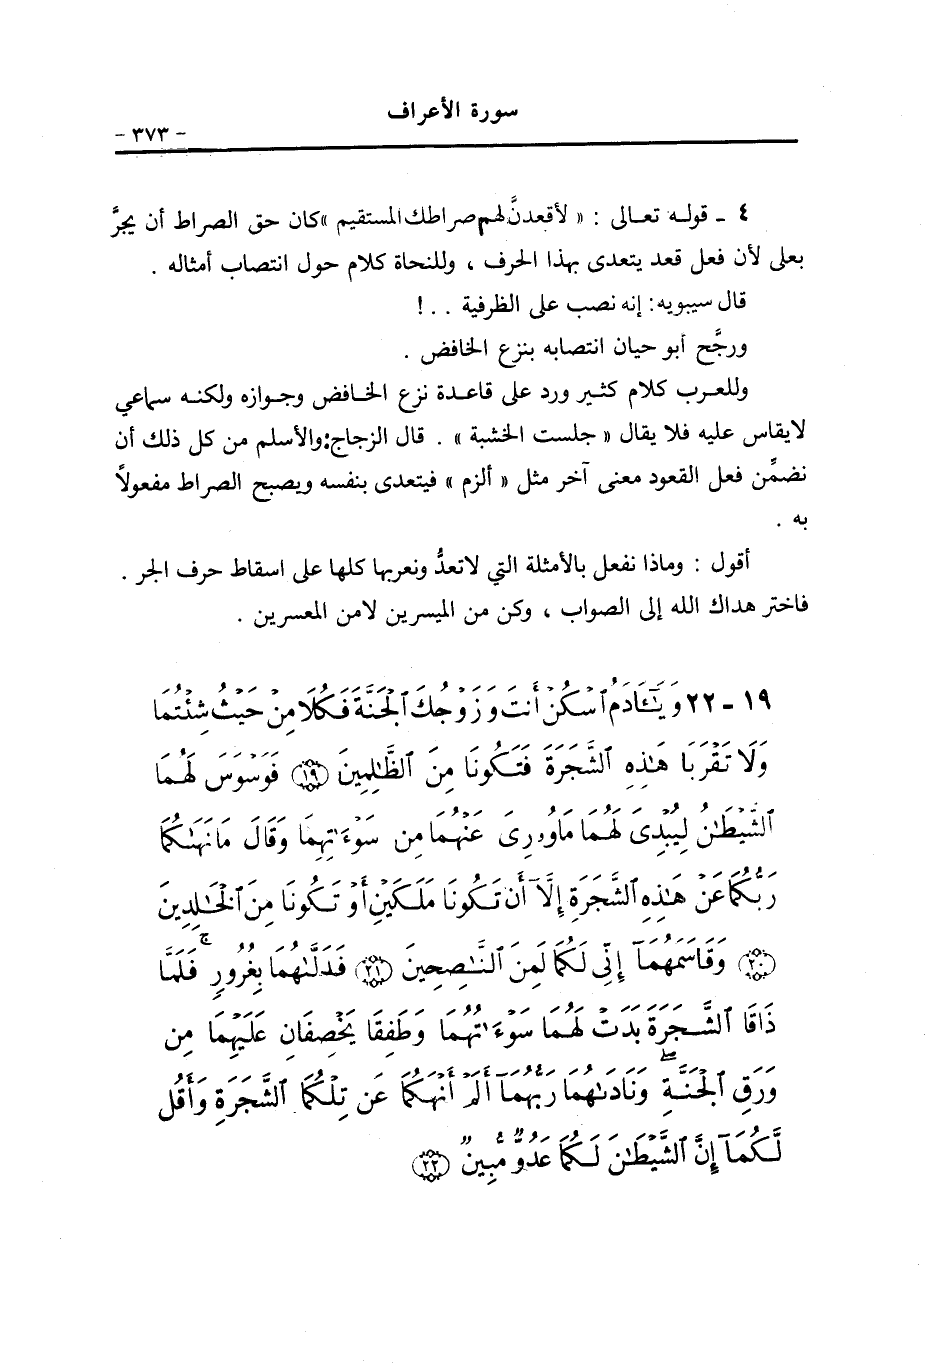 سورة الأعراف
- ٣٧٣ -
٤ ـ قولـه تعـالى : « لأقعدنَّ لهم صراطك المستقيم » كان حق الصراط أن يجرَّ
بعلى لأن فعل قعد يتعدى بهذا الحرف ، وللنحاة كلام حول انتصاب أمثاله .
قال سيبويه : إنه نصب على الظرفية . . !
ورجَّح أبو حيان انتصابه بنزع الخافض .
وللعـرب كلام كثـير ورد على قاعـدة نزع الخـافض وجـوازه ولكنـه سماعي
لايقاس عليه فلا يقال « جلست الخشبة » . قال الزجاج : والأسلم من كل ذلك أن
نضمِّن فعل القعود معنى آخر مثل « ألزم » فيتعدى بنفسه ويصبح الصراط مفعولاً
به .
أقول : وماذا نفعل بالأمثلة التي لاتعدُّ ونعربها كلها على اسقاط حرف الجر .
فاختر هداك الله إلى الصواب ، وكن من الميسرين لامن المعسرين .
١٩ ـ ٢٢ وَيَـٰٓـَٔادَمُ ٱسْكُنْ أَنتَ وَزَوْجُكَ ٱلْجَنَّةَ فَكُلَا مِنْ حَيْثُ شِئْتُمَا
وَلَا تَقْرَبَا هَـٰذِهِ ٱلشَّجَرَةَ فَتَكُونَا مِنَ ٱلظَّـٰلِمِينَ ﴿١٩﴾ فَوَسْوَسَ لَهُمَا
ٱلشَّيْطَـٰنُ لِيُبْدِىَ لَهُمَا مَا وُۥرِىَ عَنْهُمَا مِن سَوْءَٰتِهِمَا وَقَالَ مَا نَهَىٰكُمَا
رَبُّكُمَا عَنْ هَـٰذِهِ ٱلشَّجَرَةِ إِلَّآ أَن تَكُونَا مَلَكَيْنِ أَوْ تَكُونَا مِنَ ٱلْخَـٰلِدِينَ
﴿٢٠﴾ وَقَاسَمَهُمَآ إِنِّى لَكُمَا لَمِنَ ٱلنَّـٰصِحِينَ ﴿٢١﴾ فَدَلَّىٰهُمَا بِغُرُورٍ ۚ فَلَمَّا
ذَاقَا ٱلشَّجَرَةَ بَدَتْ لَهُمَا سَوْءَٰتُهُمَا وَطَفِقَا يَخْصِفَانِ عَلَيْهِمَا مِن
وَرَقِ ٱلْجَنَّةِ ۖ وَنَادَىٰهُمَا رَبُّهُمَآ أَلَمْ أَنْهَكُمَا عَن تِلْكُمَا ٱلشَّجَرَةِ وَأَقُل
لَّكُمَآ إِنَّ ٱلشَّيْطَـٰنَ لَكُمَا عَدُوٌّ مُّبِينٌ ﴿٢٢﴾